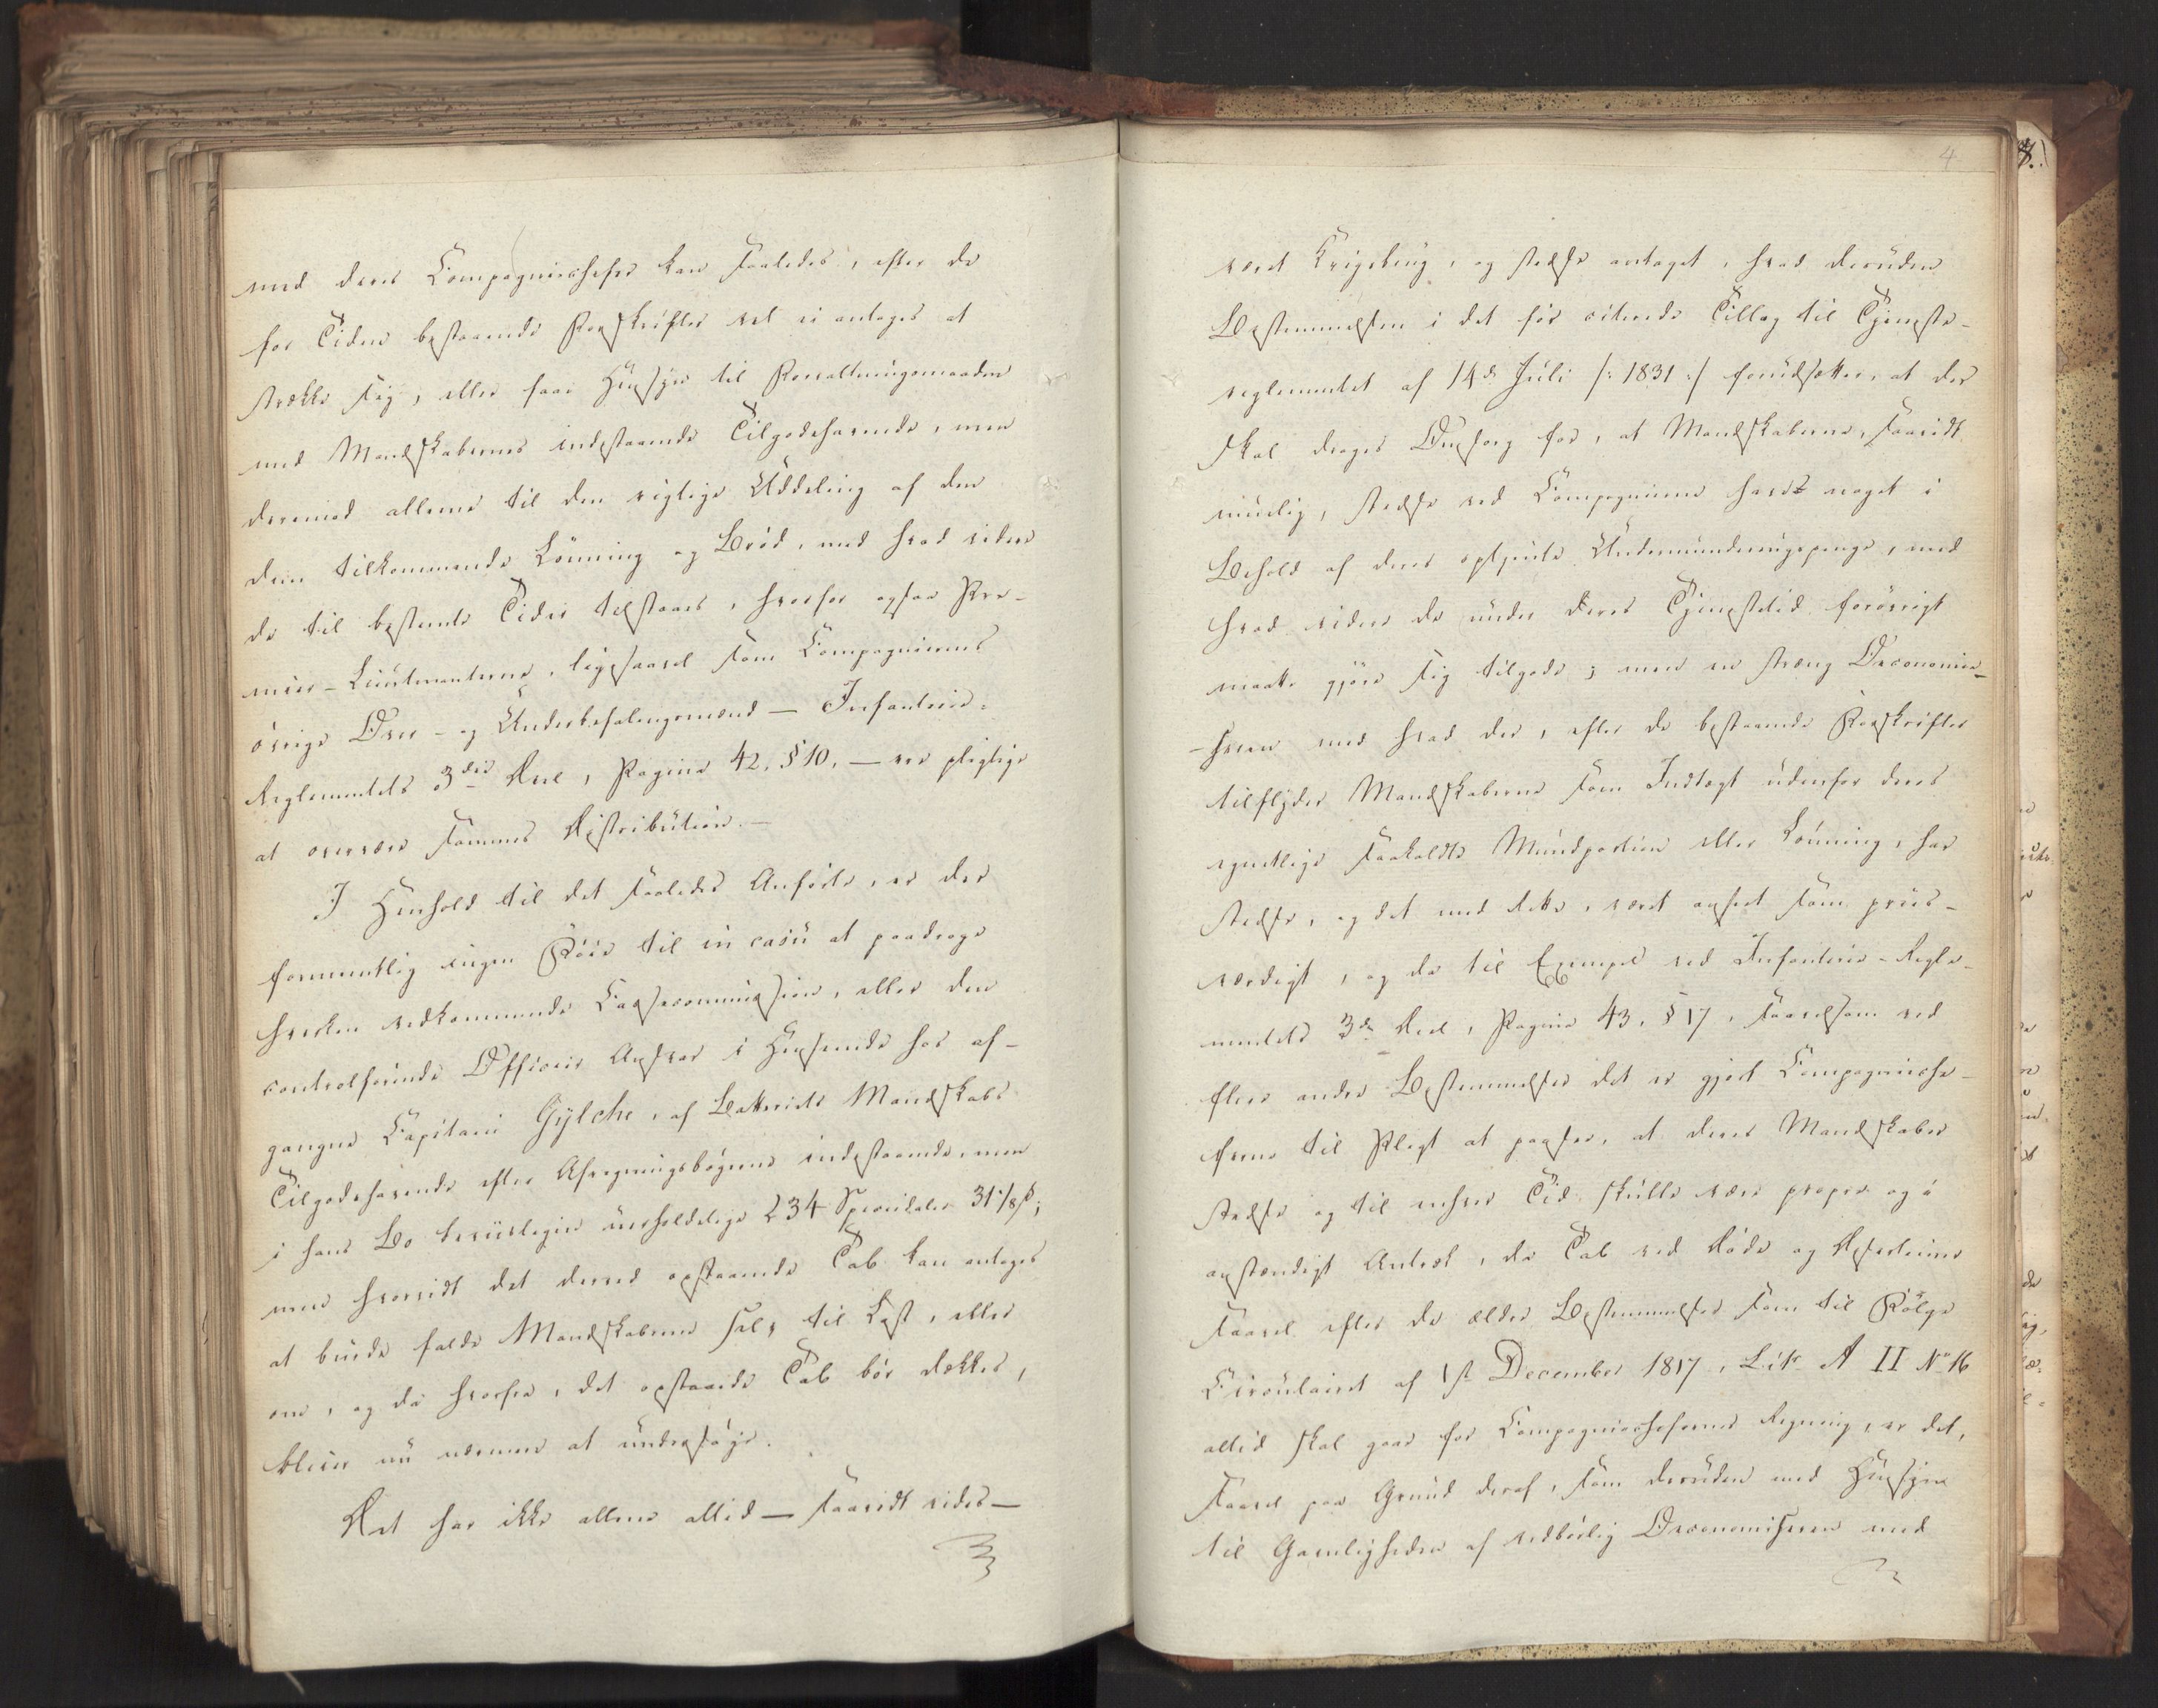 med deres Compagniechefer kan saaledes, efter de
for Tiden bestaaende Forskrifter vel ei antages at
strække sig, eller have Hensyn til Forvaltningsmaaden
med Mandskabernes indestaaende Tilgodehavende, men
derimod allene til den rigtige Uddeling af den
dem tilkommende Lönning og Bröd, med hvad videre
de til bestemte Tider tilstaaes, hvorfor ogsaa Pre-
mier-Lieutenanterne, ligesaavel som Compagniernes
övrige Over- og Underbefalingsmænd — Infanterie-
Reglementets 3die Deel, Pagina 42, § 10, — ere pligtige
at overvære sammes Distribution. —
I Henhold til det saaledes Anförte, er der
formeentlig ingen Föie til in casu at paadrage
hverken vedkommende Cassecommission, eller den
controlförende Officeer Ansvar i Henseende hos af-
gangne Capitain Gylche, af Batteriets Mandskabs
Tilgodehavende efter Afregningsbögerne indestaaende, men
i hans Bo beviisligen uerholdelige 234 Speciedaler 31 1/8 s;
men hvorvidt det derved opstaaende Tab kan antages
at burde falde Mandskaberne selv til Last, eller
om, og da hvorfra, det opstaaede Tab bör dækkes,
bliver nu nærmere at undersöge.
Det har ikke allene altid — saavidt vides —
4
været Krigsbrug, og stedse antaget, hvad desuden
Bestemmelsen i det för citerede Tillæg til Tjeneste-
reglementet af 14de Juli /: 1831 :/ forudsætter, at der
skal drages Omsorg for, at Mandskaberne, saavidt
muelig, stedse ved Compagnierne havde noget i
Behold af deres optjente Undermunderingspenge, med
hvad videre de under deres Tjenestetid forövrigt
maatte gjöre sig tilgode; men en streng Oeconomise-
-heren med hvad der, efter de bestaaende Forskrifter
tilflyder Mandskaberne som Indtægt udenfor deres
egentlige saakaldte Mundportion eller Lönning, har
stedse, og det med Rette, været anseet som priis-
værdigt, og da til Exempel ved Infanterie-Regle-
mentets 3die Deel, Pagina 43, § 17, saavelsom ved
flere andre Bestemmelser det er gjort Compagnieche-
ferne til Pligt at paasee, at deres Mandskaber
stedse og til enhver Tid skulle være propre og i
anstændigt Antræk, da Tab ved Döde og Deserteurer
saavel efter de ældre Bestemmelser som til Fölge
Circulairet af 1ste December 1817, Litr A II No 16
altid skal gaae for Compagniechefernes Regning, er det,
saavel paa Grund deraf, som desuden med Hensyn
til Gavnligheden af vedbörlig Oeconomiseren med